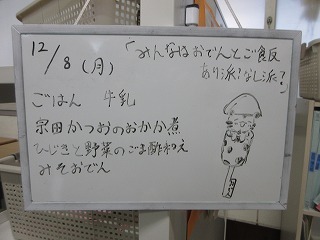 12/8(月)
「みんなはおでんとご飯
あり派?なし派?」
ごはん 牛乳
宗田かつおのおかか煮
ひじきと野菜のごま酢和え
みそおでん